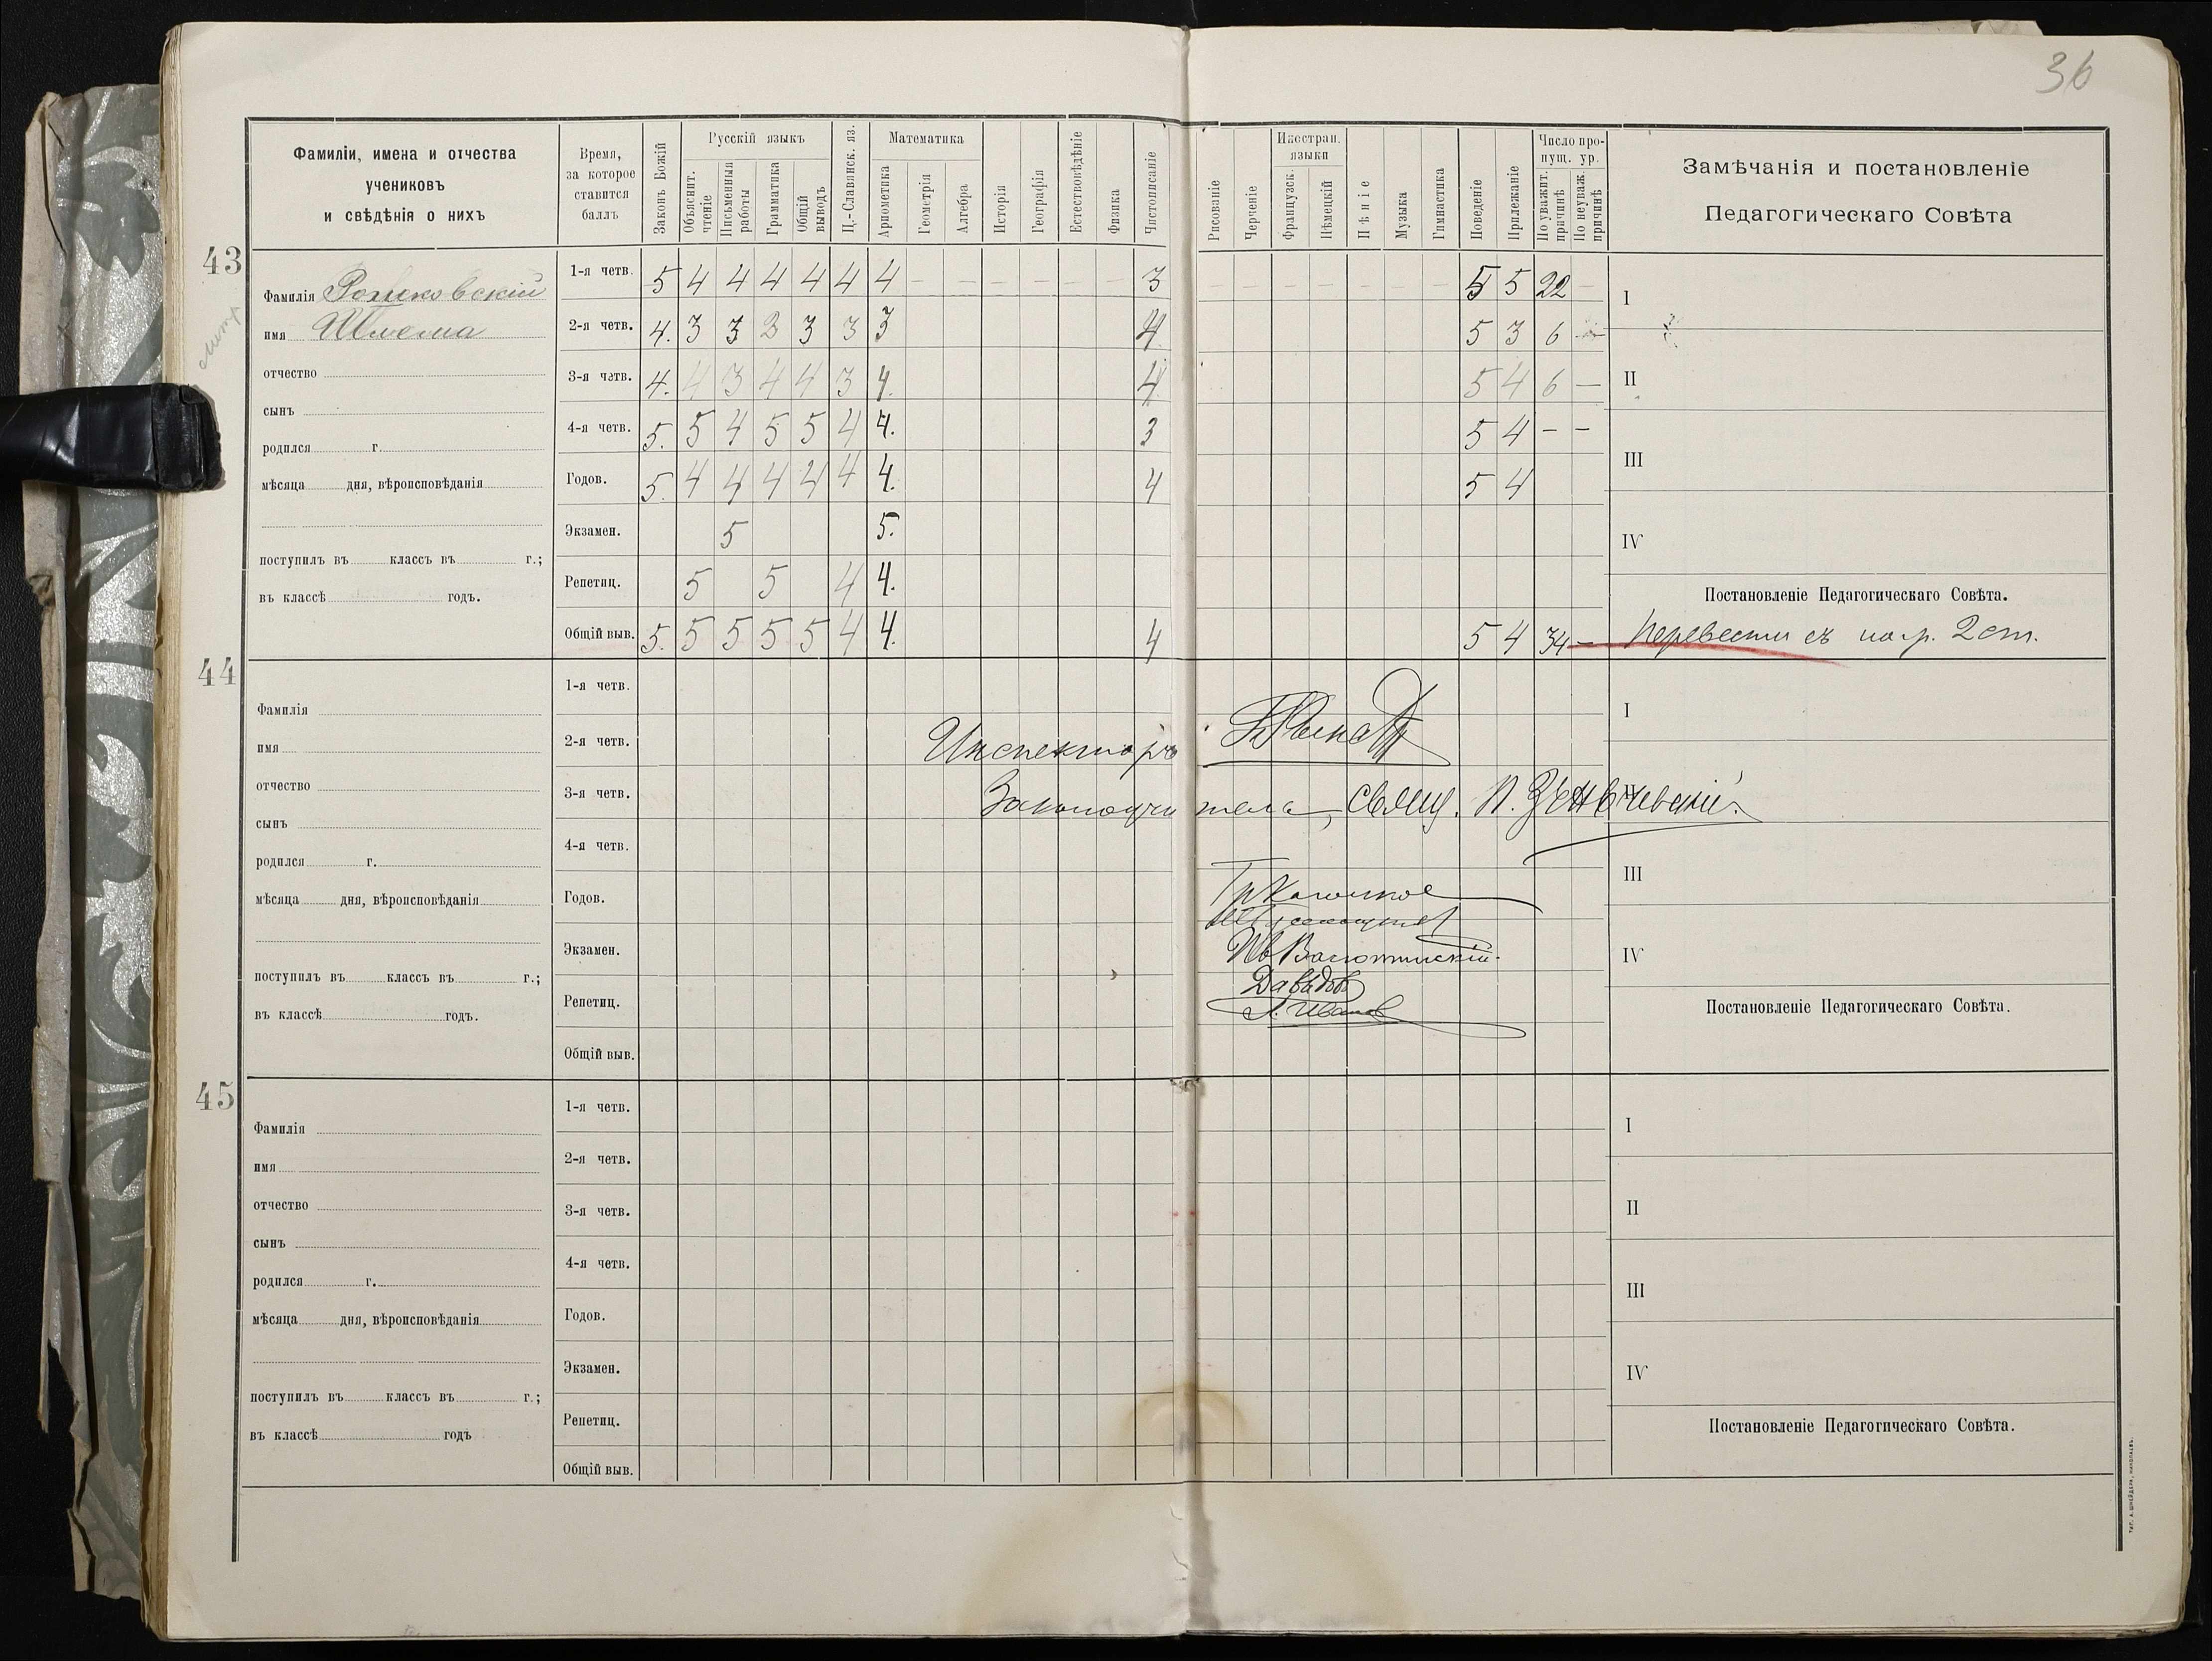 36
Фамиліи, имена и отчества
учениковъ
и свѣдѣнія о нихъ
Время,
за которое
ставится
баллъ
Законъ Божій
Русскій языкъ
Объяснит. чтеніе
Письменныя работы
Грамматика
Общій выводъ
Ц.-Славянск. яз.
Математика
Ариѳметика
Геометрія
Алгебра
Исторія
Географія
Естествовѣдѣніе
Физика
Чистописаніе
Рисованіе
Черченіе
Иностран. языки
Французск.
Нѣмецкій
Пѣніе
Музыка
Гимнастика
Поведеніе
Прилежаніе
Число про-
пущ. ур.
По уважит. причинѣ
По неуваж. причинѣ
Замѣчанія и постановленіе
Педагогическаго Совѣта
43
Фамилія
имя Шлема
отчество
сынъ
родился г.
мѣсяца дня, вѣроисповѣданія
поступилъ въ классъ въ г.;
въ классѣ годъ.
1-я четв. 5 4 4 4 4 4 4 – – – – – – 3 – – – – – – – 5 5 22 –
2-я четв. 4. 3 3 2 3 3 3 4 5 3 6 –
3-я четв. 4. 4 3 4 4 3 4. 4 5 4 6 –
4-я четв. 5. 5 4 5 5 4 4. 3 5 4 – –
Годов. 5. 4 4 4 4 4 4. 4 5 4
Экзамен. 5 5.
Репетиц. 5 5 4 4.
Общій выв. 5. 5 5 5 5 4 4. 4 5 4 34 –
I
II
III
IV
Постановленіе Педагогическаго Совѣта.
Перевести съ нагр. 2 ст.
44
Фамилія
имя
отчество
сынъ
родился г.
мѣсяца дня, вѣроисповѣданія
поступилъ въ классъ въ г.;
въ классѣ годъ.
1-я четв.
2-я четв.
3-я четв.
4-я четв.
Годов.
Экзамен.
Репетиц.
Общій выв.
Инспекторъ
Законоучитель, свящ. П.
Давыдовъ
А. Иванов
I
II
III
IV
Постановленіе Педагогическаго Совѣта.
45
Фамилія
имя
отчество
сынъ
родился г.
мѣсяца дня, вѣроисповѣданія
поступилъ въ классъ въ г.;
въ классѣ годъ
1-я четв.
2-я четв.
3-я четв.
4-я четв.
Годов.
Экзамен.
Репетиц.
Общій выв.
I
II
III
IV
Постановленіе Педагогическаго Совѣта.
ТИП. А. ШНЕЙДЕРА, НИКОЛАЕВЪ.